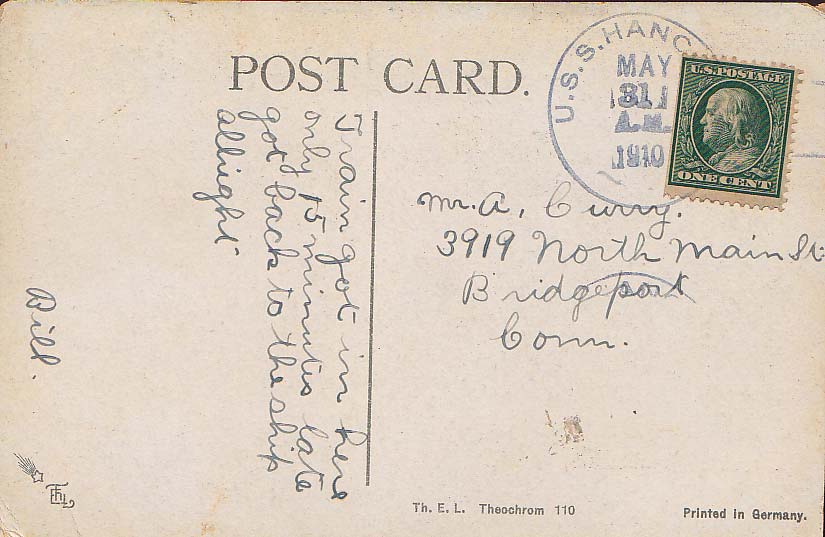 POST CARD.
U.S.S. HANC
MAY
31
A.M.
1910
U.S. POSTAGE
ONE CENT
Train got in here
only 15 minutes late
got back to the ship
allright
Bill.
Mr. A. Curry.
3919 North Main St
Bridgeport
Conn.
Th. E. L. Theochrom 110
Printed in Germany.